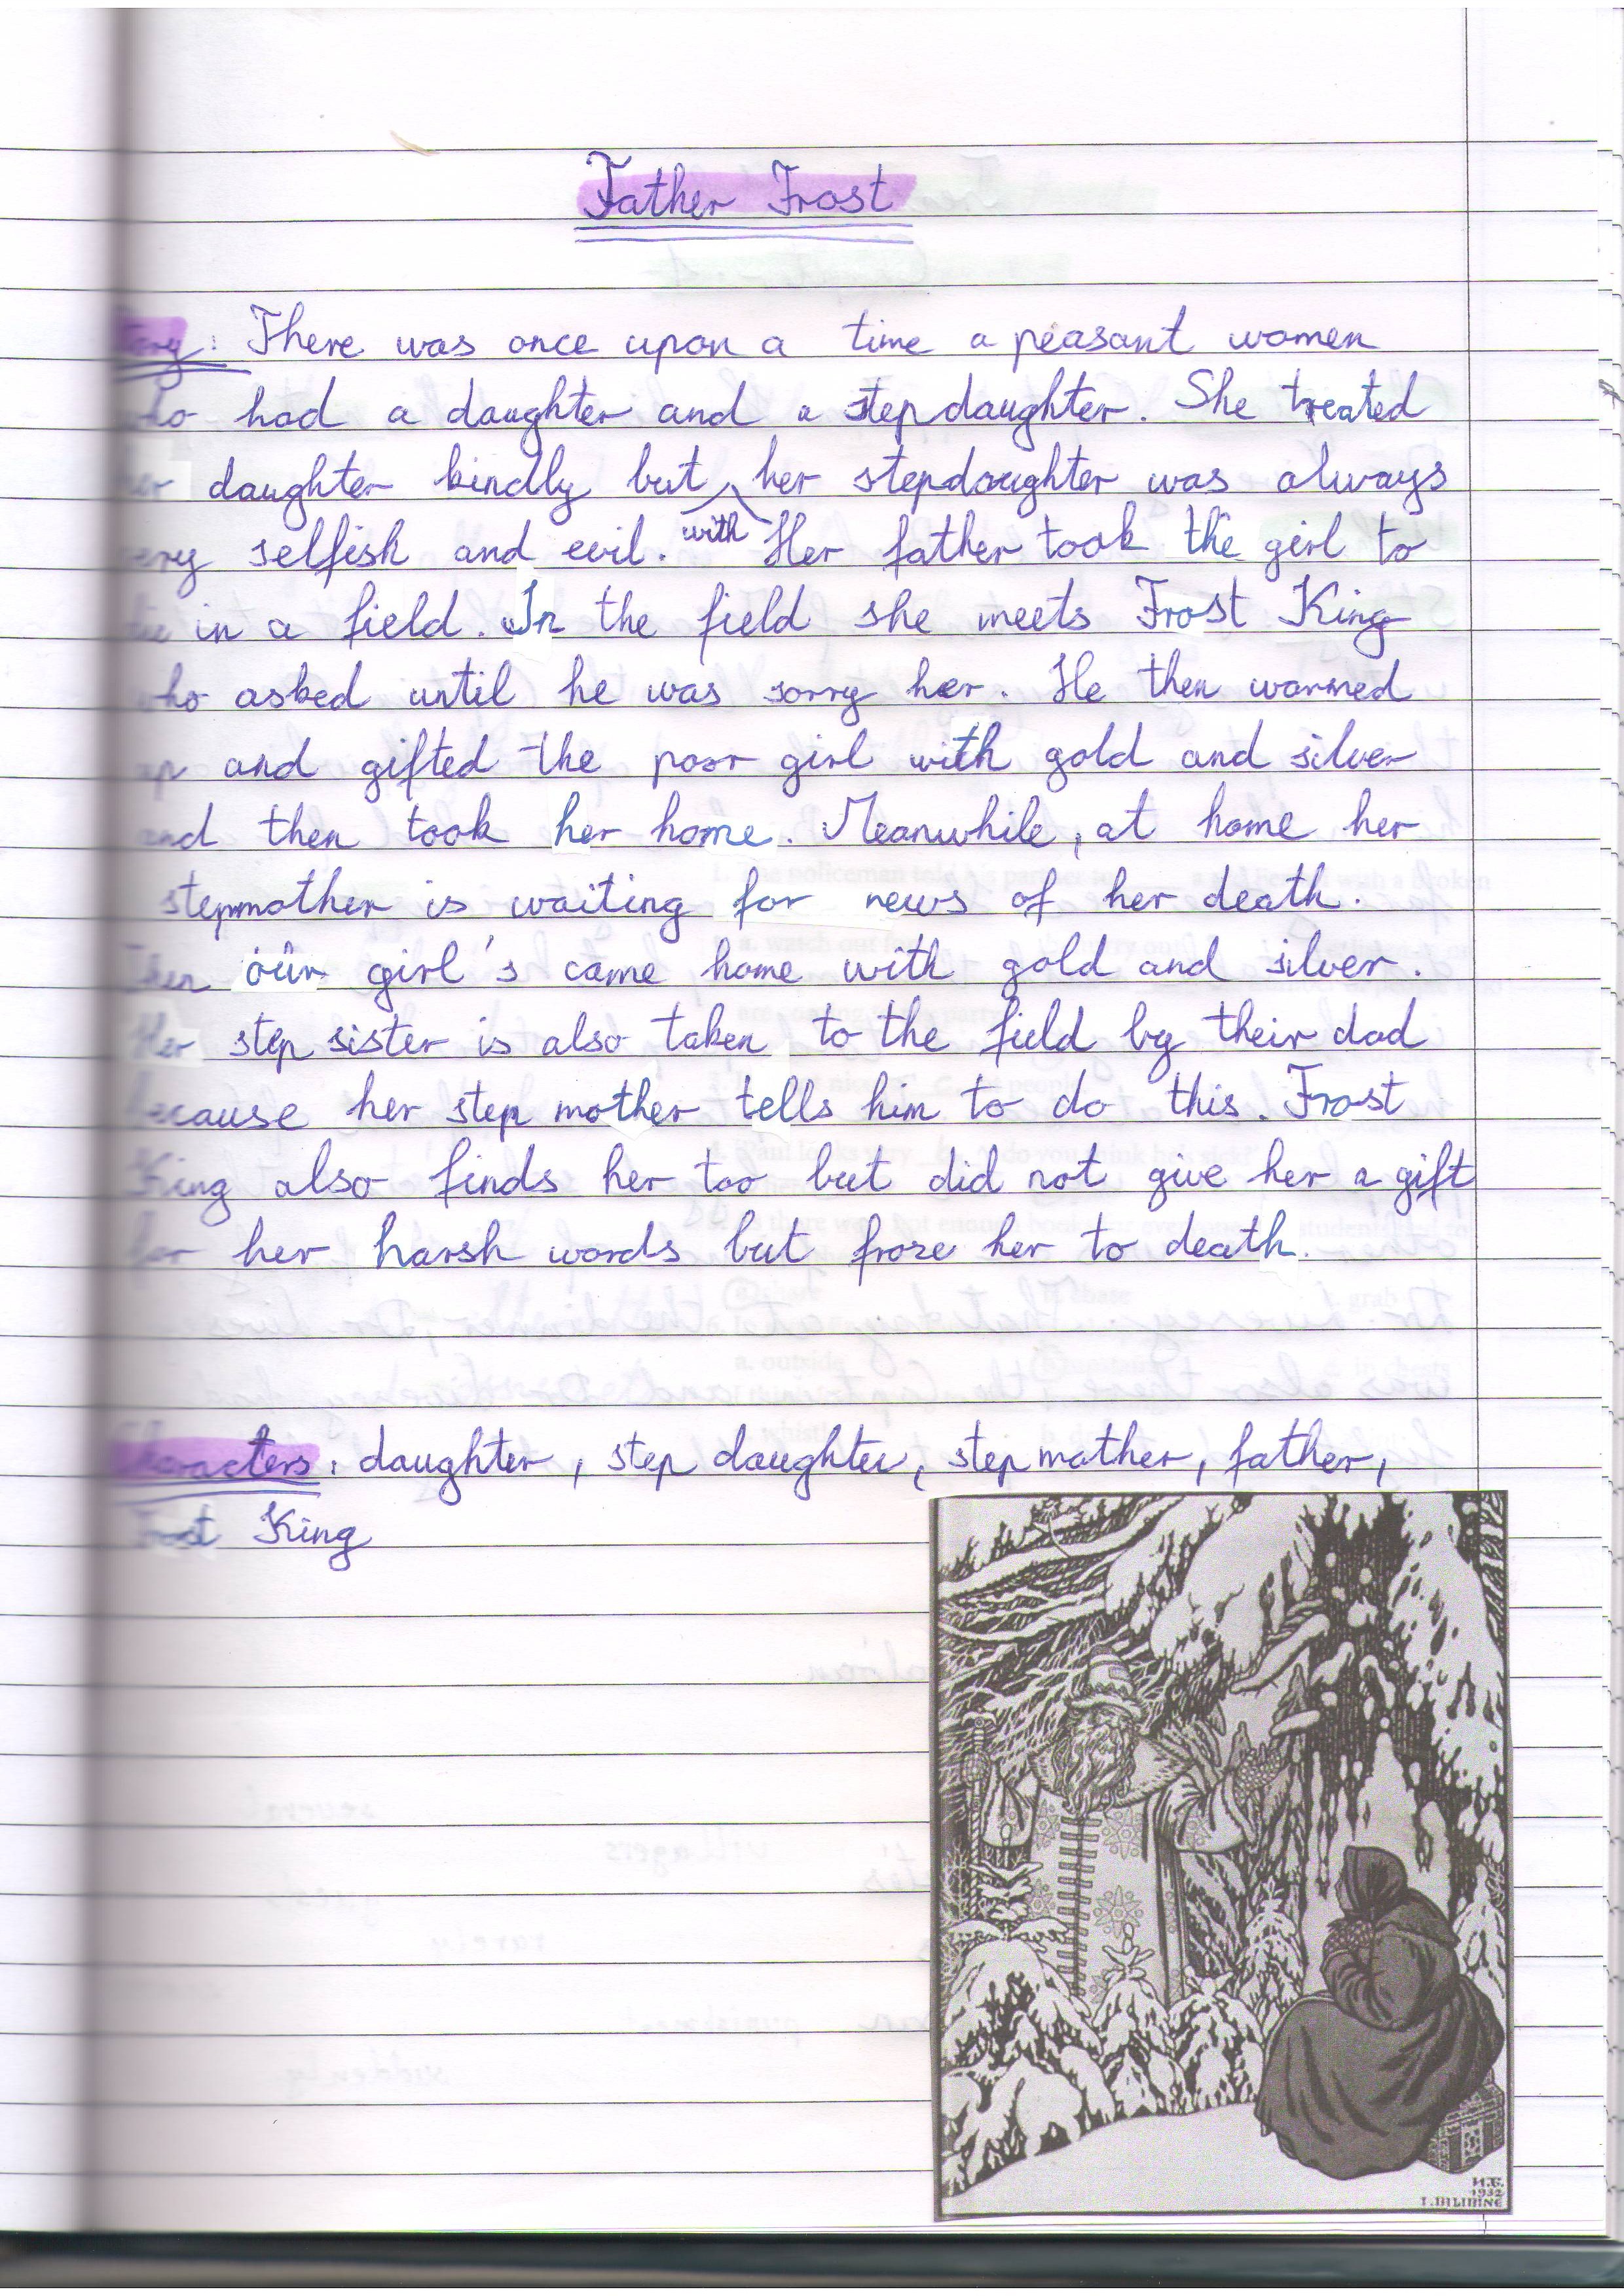 Father Frost
Story: There was once upon a time a peasant women
who had a daughter and a stepdaughter. She treated
her daughter kindly but with her stepdaughter was always
very selfish and evil. Her father took the girl to
die in a field. In the field she meets Frost King
who asked until he was sorry her. He then warmed
up and gifted the poor girl with gold and silver
and then took her home. Meanwhile, at home her
stepmother is waiting for news of her death.
Then our girl's came home with gold and silver.
Her step sister is also taken to the field by their dad
because her step mother tells him to do this. Frost
King also finds her too but did not give her a gift
for her harsh words but froze her to death.
Characters: daughter, step daughter, step mother, father,
Frost King
И.Б.
1932
I. BILIBINE